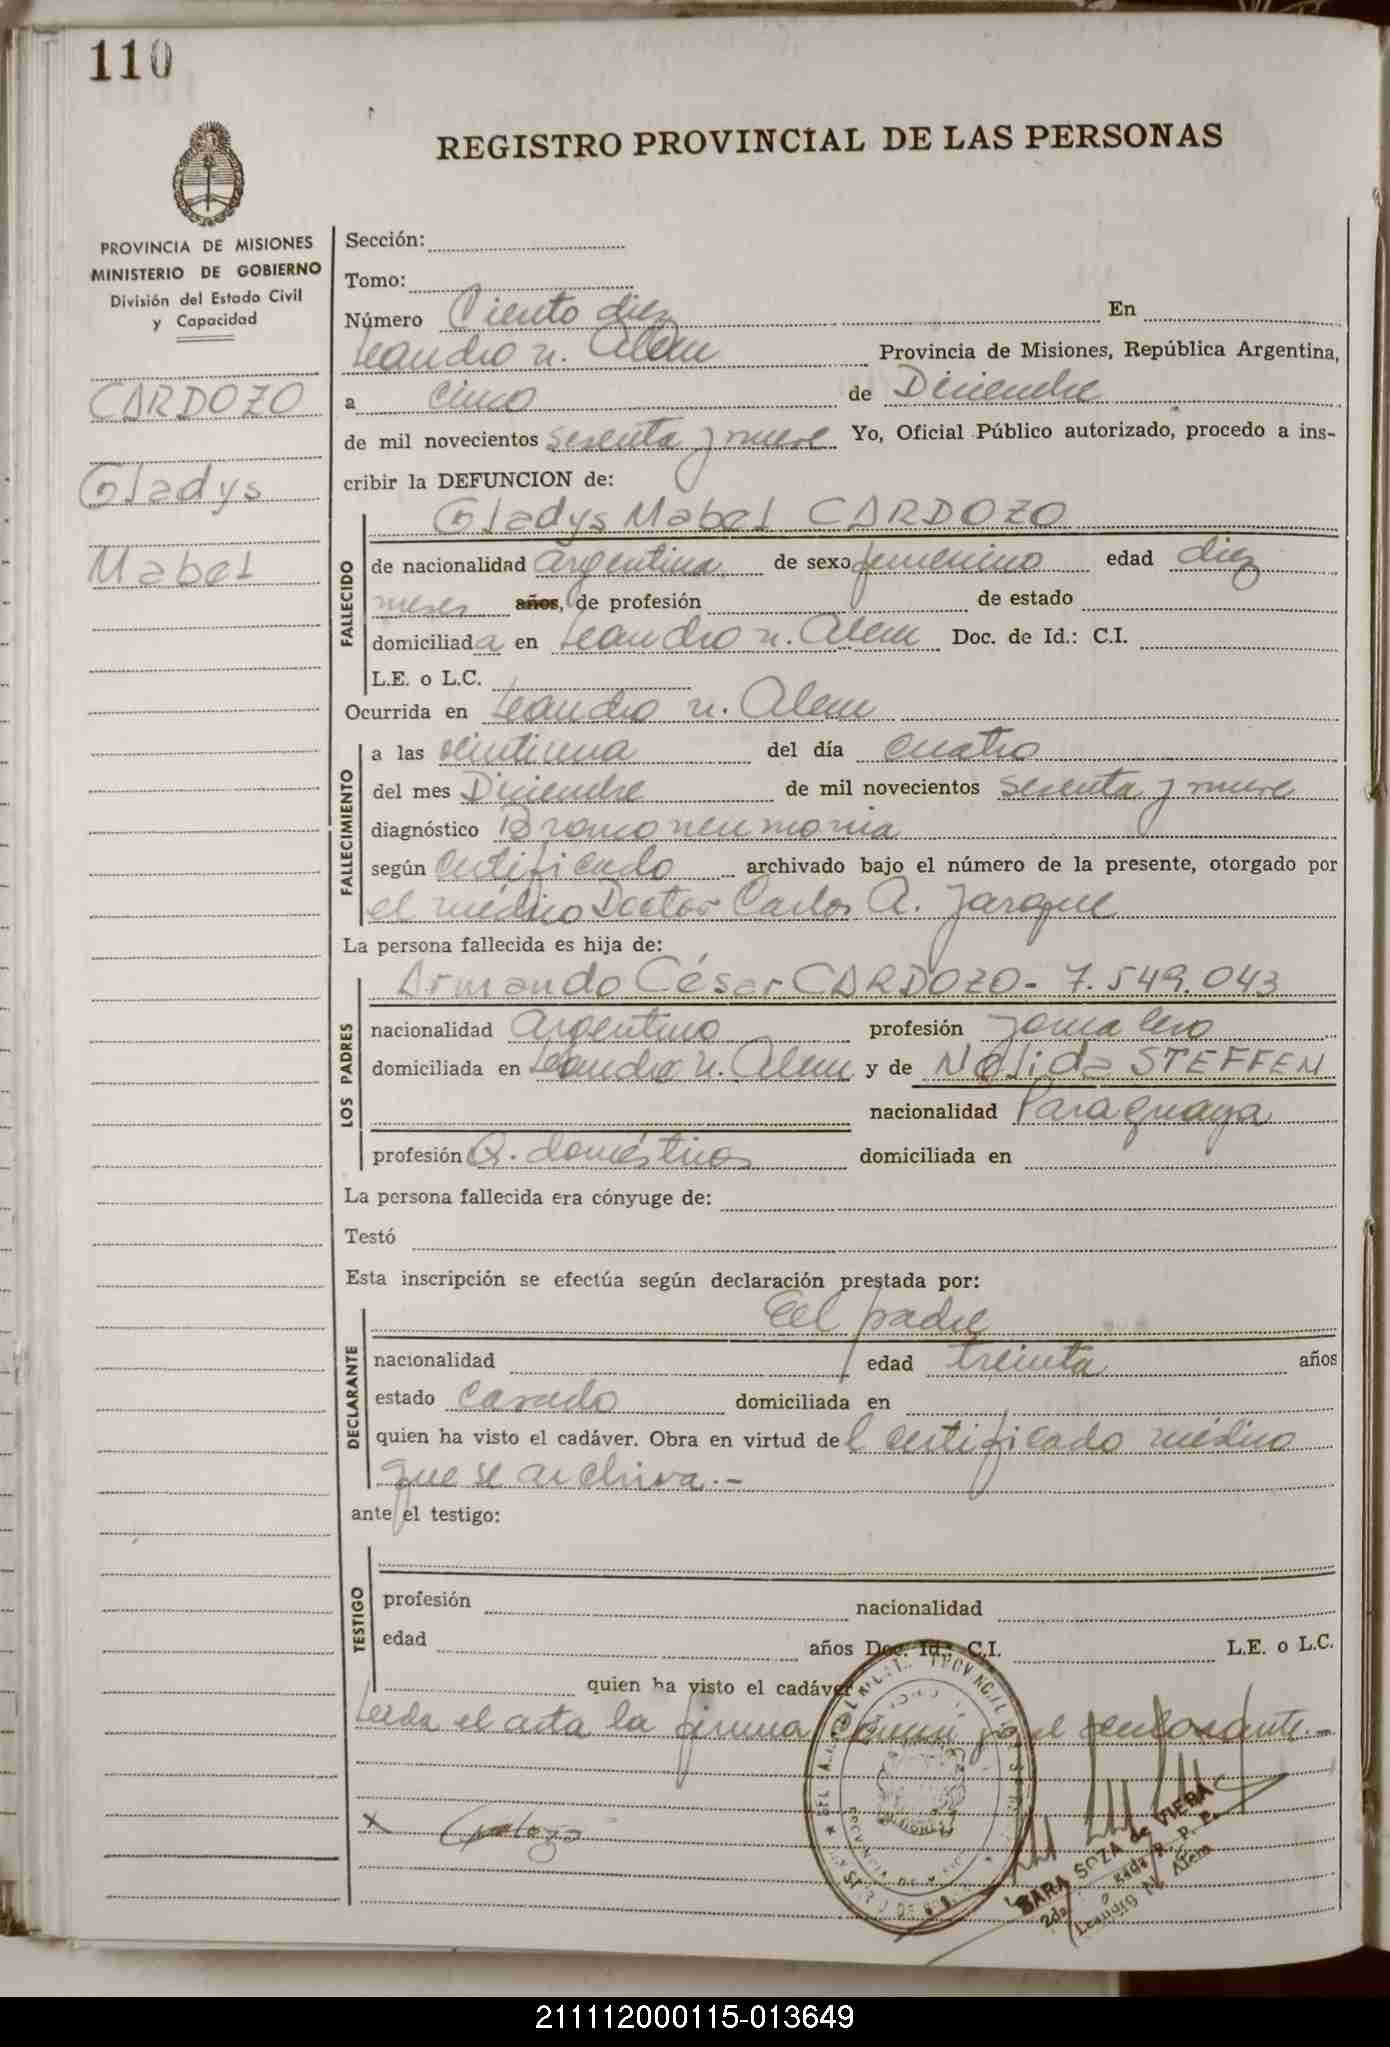 110
REGISTRO PROVINCIAL DE LAS PERSONAS
PROVINCIA DE MISIONES
MINISTERIO DE GOBIERNO
División del Estado Civil
y Capacidad
CARDOZO
Gladys
Mabel
Sección:
Tomo:
Número Ciento diez En
Leandro N. Alem Provincia de Misiones, República Argentina,
a cinco de Diciembre
de mil novecientos sesenta y nueve Yo, Oficial Público autorizado, procedo a ins-
cribir la DEFUNCION de:
Gladys Mabel CARDOZO
FALLECIDO
de nacionalidad argentina de sexo femenino edad diez
meses años, de profesión de estado
domiciliada en Leandro N. Alem Doc. de Id.: C.I.
L.E. o L.C.
Ocurrida en Leandro N. Alem
FALLECIMIENTO
a las veintiuna del día cuatro
del mes Diciembre de mil novecientos sesenta y nueve
diagnóstico Bronconeumonia
según certificado archivado bajo el número de la presente, otorgado por
el médico Doctor Carlos A. Jarque
La persona fallecida es hija de:
LOS PADRES
Armando César CARDOZO - 7.549.043
nacionalidad Argentino profesión Jornalero
domiciliada en Leandro N. Alem y de Nélida STEFFEN
nacionalidad Paraguaya
profesión Q. domésticos domiciliada en
La persona fallecida era cónyuge de:
Testó
Esta inscripción se efectúa según declaración prestada por:
DECLARANTE
El padre
nacionalidad edad treinta años
estado casado domiciliada en
quien ha visto el cadáver. Obra en virtud del certificado médico
que se archiva.-
ante el testigo:
TESTIGO
profesión nacionalidad
edad años Doc. Id.: C.I. L.E. o L.C.
quien ha visto el cadáver
Leida el acta la firma y el declarante.-
x Cardozo
SARA SOZA de VIERA
2da R. P. P.
Leandro N. Alem
211112000115-013649